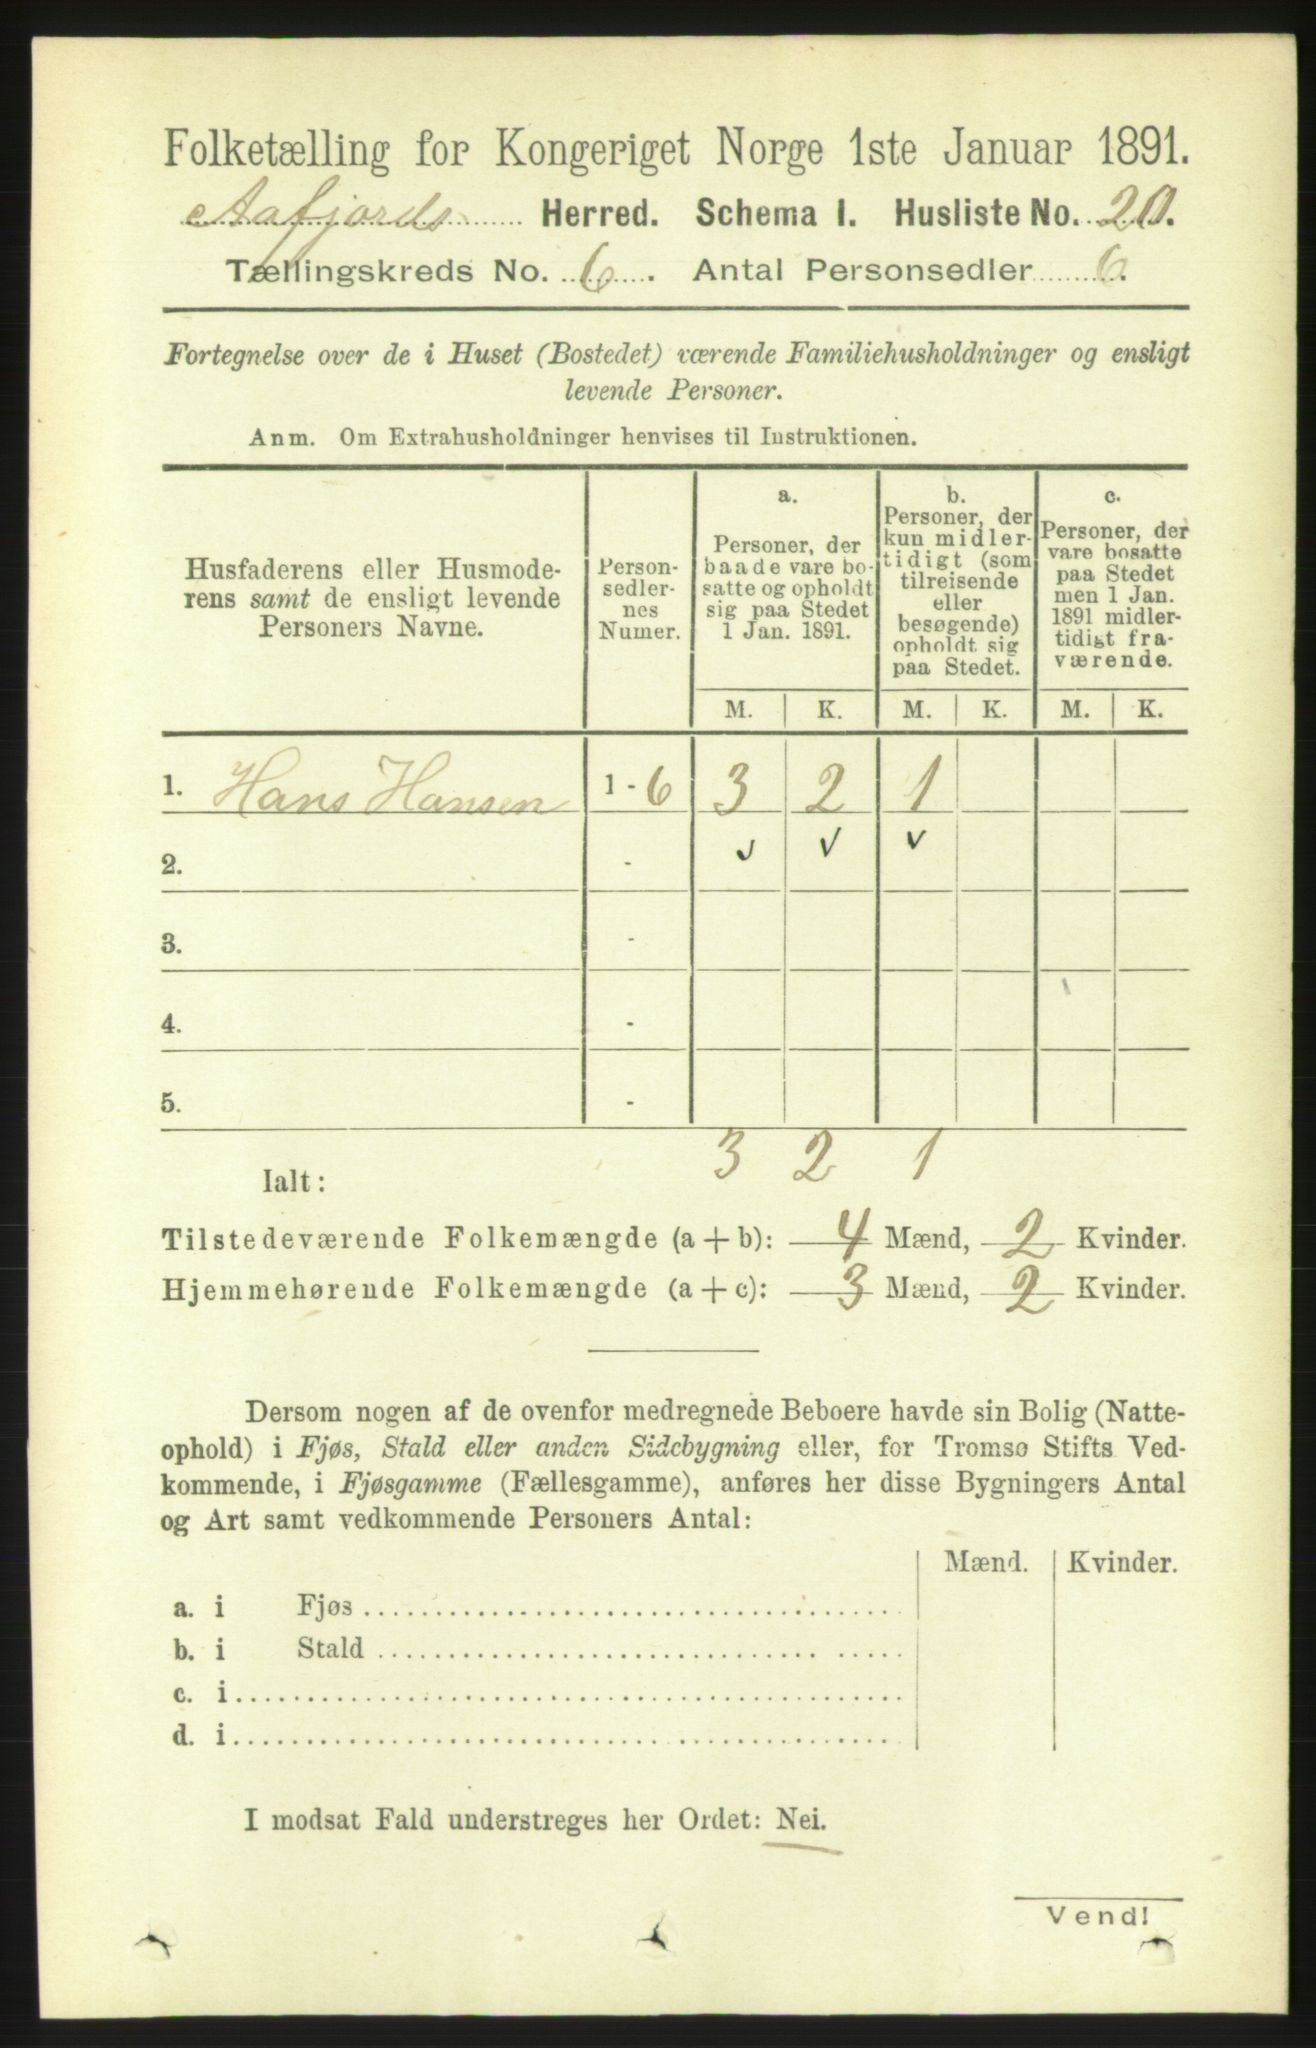 Folketælling for Kongeriget Norge 1ste Januar 1891.
Aafjords Herred. Schema I. Husliste No. 20.
Tællingskreds No. 6. Antal Personsedler 6.
Fortegnelse over de i Huset (Bostedet) værende Familiehusholdninger og ensligt
levende Personer.
Anm. Om Extrahusholdninger henvises til Instruktionen.
Husfaderens eller Husmode-
rens samt de ensligt levende
Personers Navne.
Person-
sedler-
nes
Numer.
a.
Personer, der
baade vare bo-
satte og opholdt
sig paa Stedet
1 Jan. 1891.
b.
Personer, der
kun midler-
tidigt (som
tilreisende
eller
besøgende)
opholdt sig
paa Stedet.
c.
Personer, der
vare bosatte
paa Stedet
men 1 Jan.
1891 midler-
tidigt fra-
værende.
M. K. M. K. M. K.
1. Hans Hansen 1 - 6 3 2 1
2. - ✓ ✓ ✓
3. -
4. -
5. -
Ialt: 3 2 1
Tilstedeværende Folkemængde (a + b): 4 Mænd, 2 Kvinder.
Hjemmehørende Folkemængde (a + c): 3 Mænd, 2 Kvinder.
Dersom nogen af de ovenfor medregnede Beboere havde sin Bolig (Natte-
ophold) i Fjøs, Stald eller anden Sidebygning eller, for Tromsø Stifts Ved-
kommende, i Fjøsgamme (Fællesgamme), anføres her disse Bygningers Antal
og Art samt vedkommende Personers Antal:
Mænd. Kvinder.
a. i Fjøs
b. i Stald
c. i
d. i
I modsat Fald understreges her Ordet: Nei.
Vend!